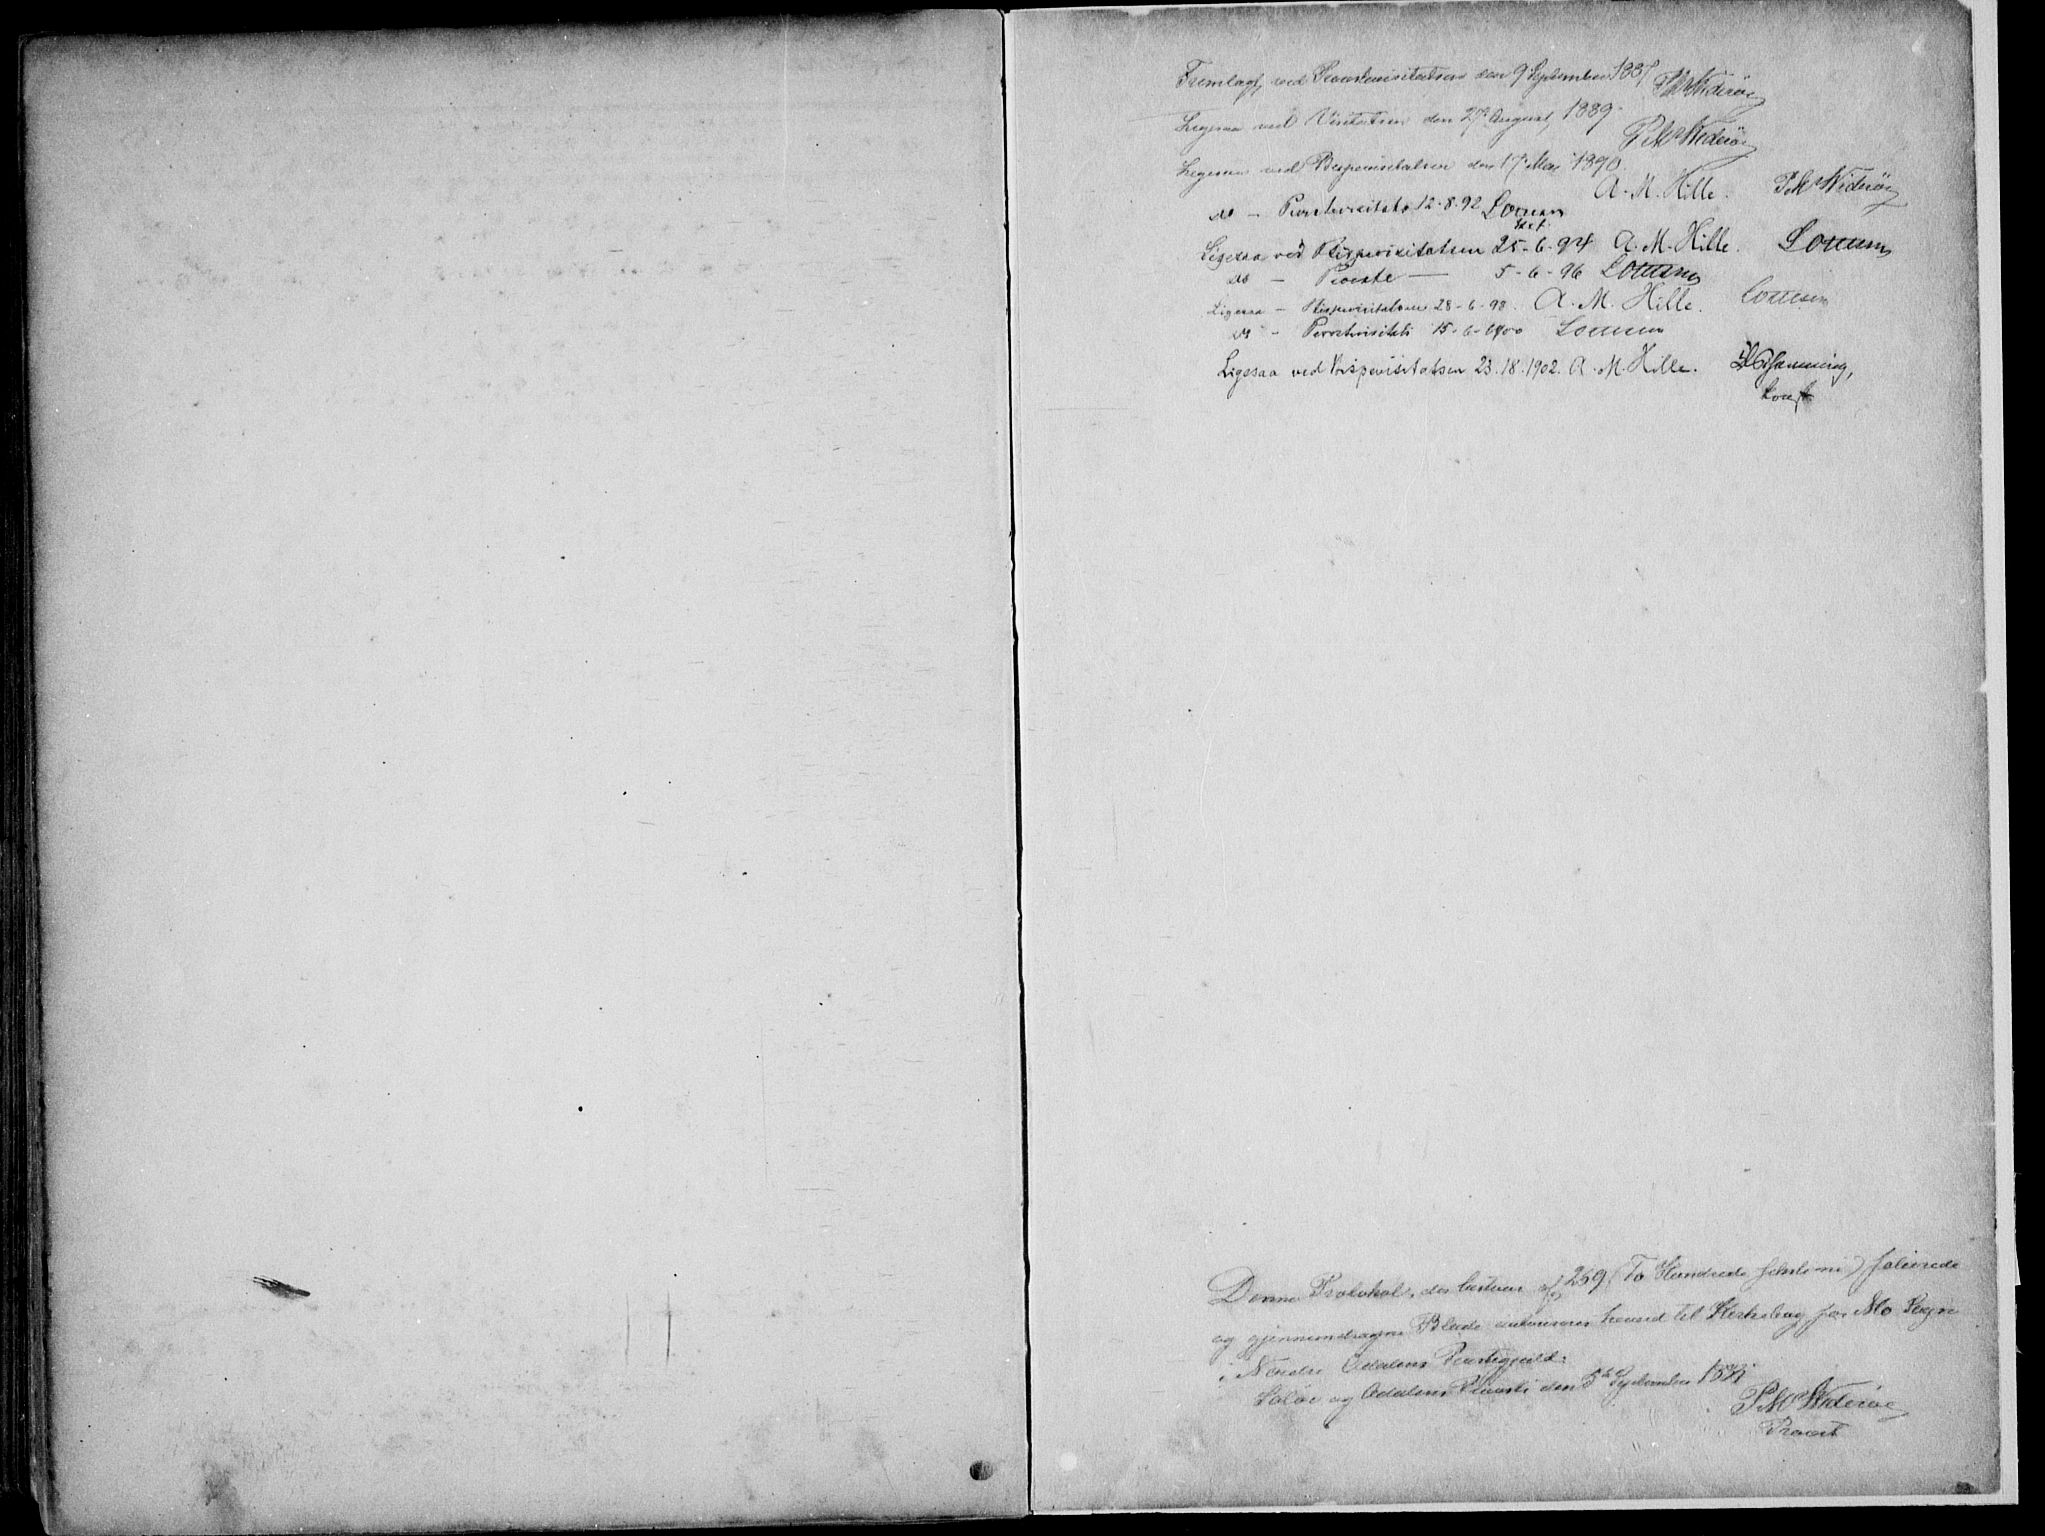 Fremlagt ved Provstevisitatsen den 9 September 1887 P M Widerøe
Ligesaa ved Visitatsen den 27 August 1889. P M Widerøe
Ligesaa ved Bispevisitatsen den 17 Mai 1890.
A. M. Hille. P M Widerøe
do — Provstevisitats 12-8-92 Lousen
kst.
Ligesaa ved Bispevisitatsen 25-6-94 A. M. Hille. Lousen
do — Provste — 5-6-96 Lousen
Ligesaa — Bispevisitatsen 28-6-98. A. M. Hille. Lousen
do — Provstevisitats 15-6-1900 Lousen
Ligesaa ved Bispevisitatsen 23.18.1902. A. M. Hille.
konst.
Denne Protokol, der bestaar af 269 (To Hundrede sexti ni) folierede
og gjennemdragne Blade autoriseres herved til Kirkebog for Mo Sogn
i Nordre Odalens Præstegjæld.
Solør og Odalens Provsti den 5te September
P M Widerøe
Provst